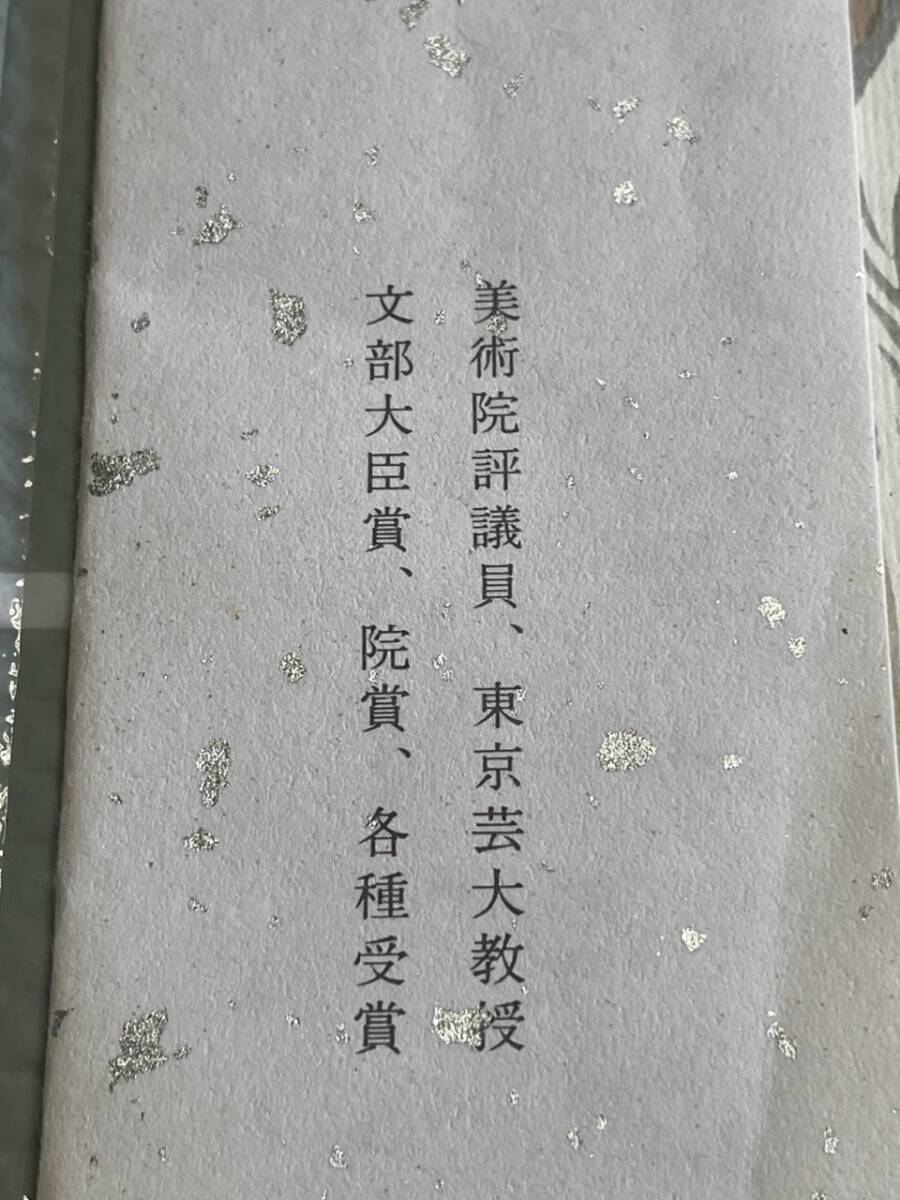 美術院評議員、東京芸大教授
文部大臣賞、院賞、各種受賞